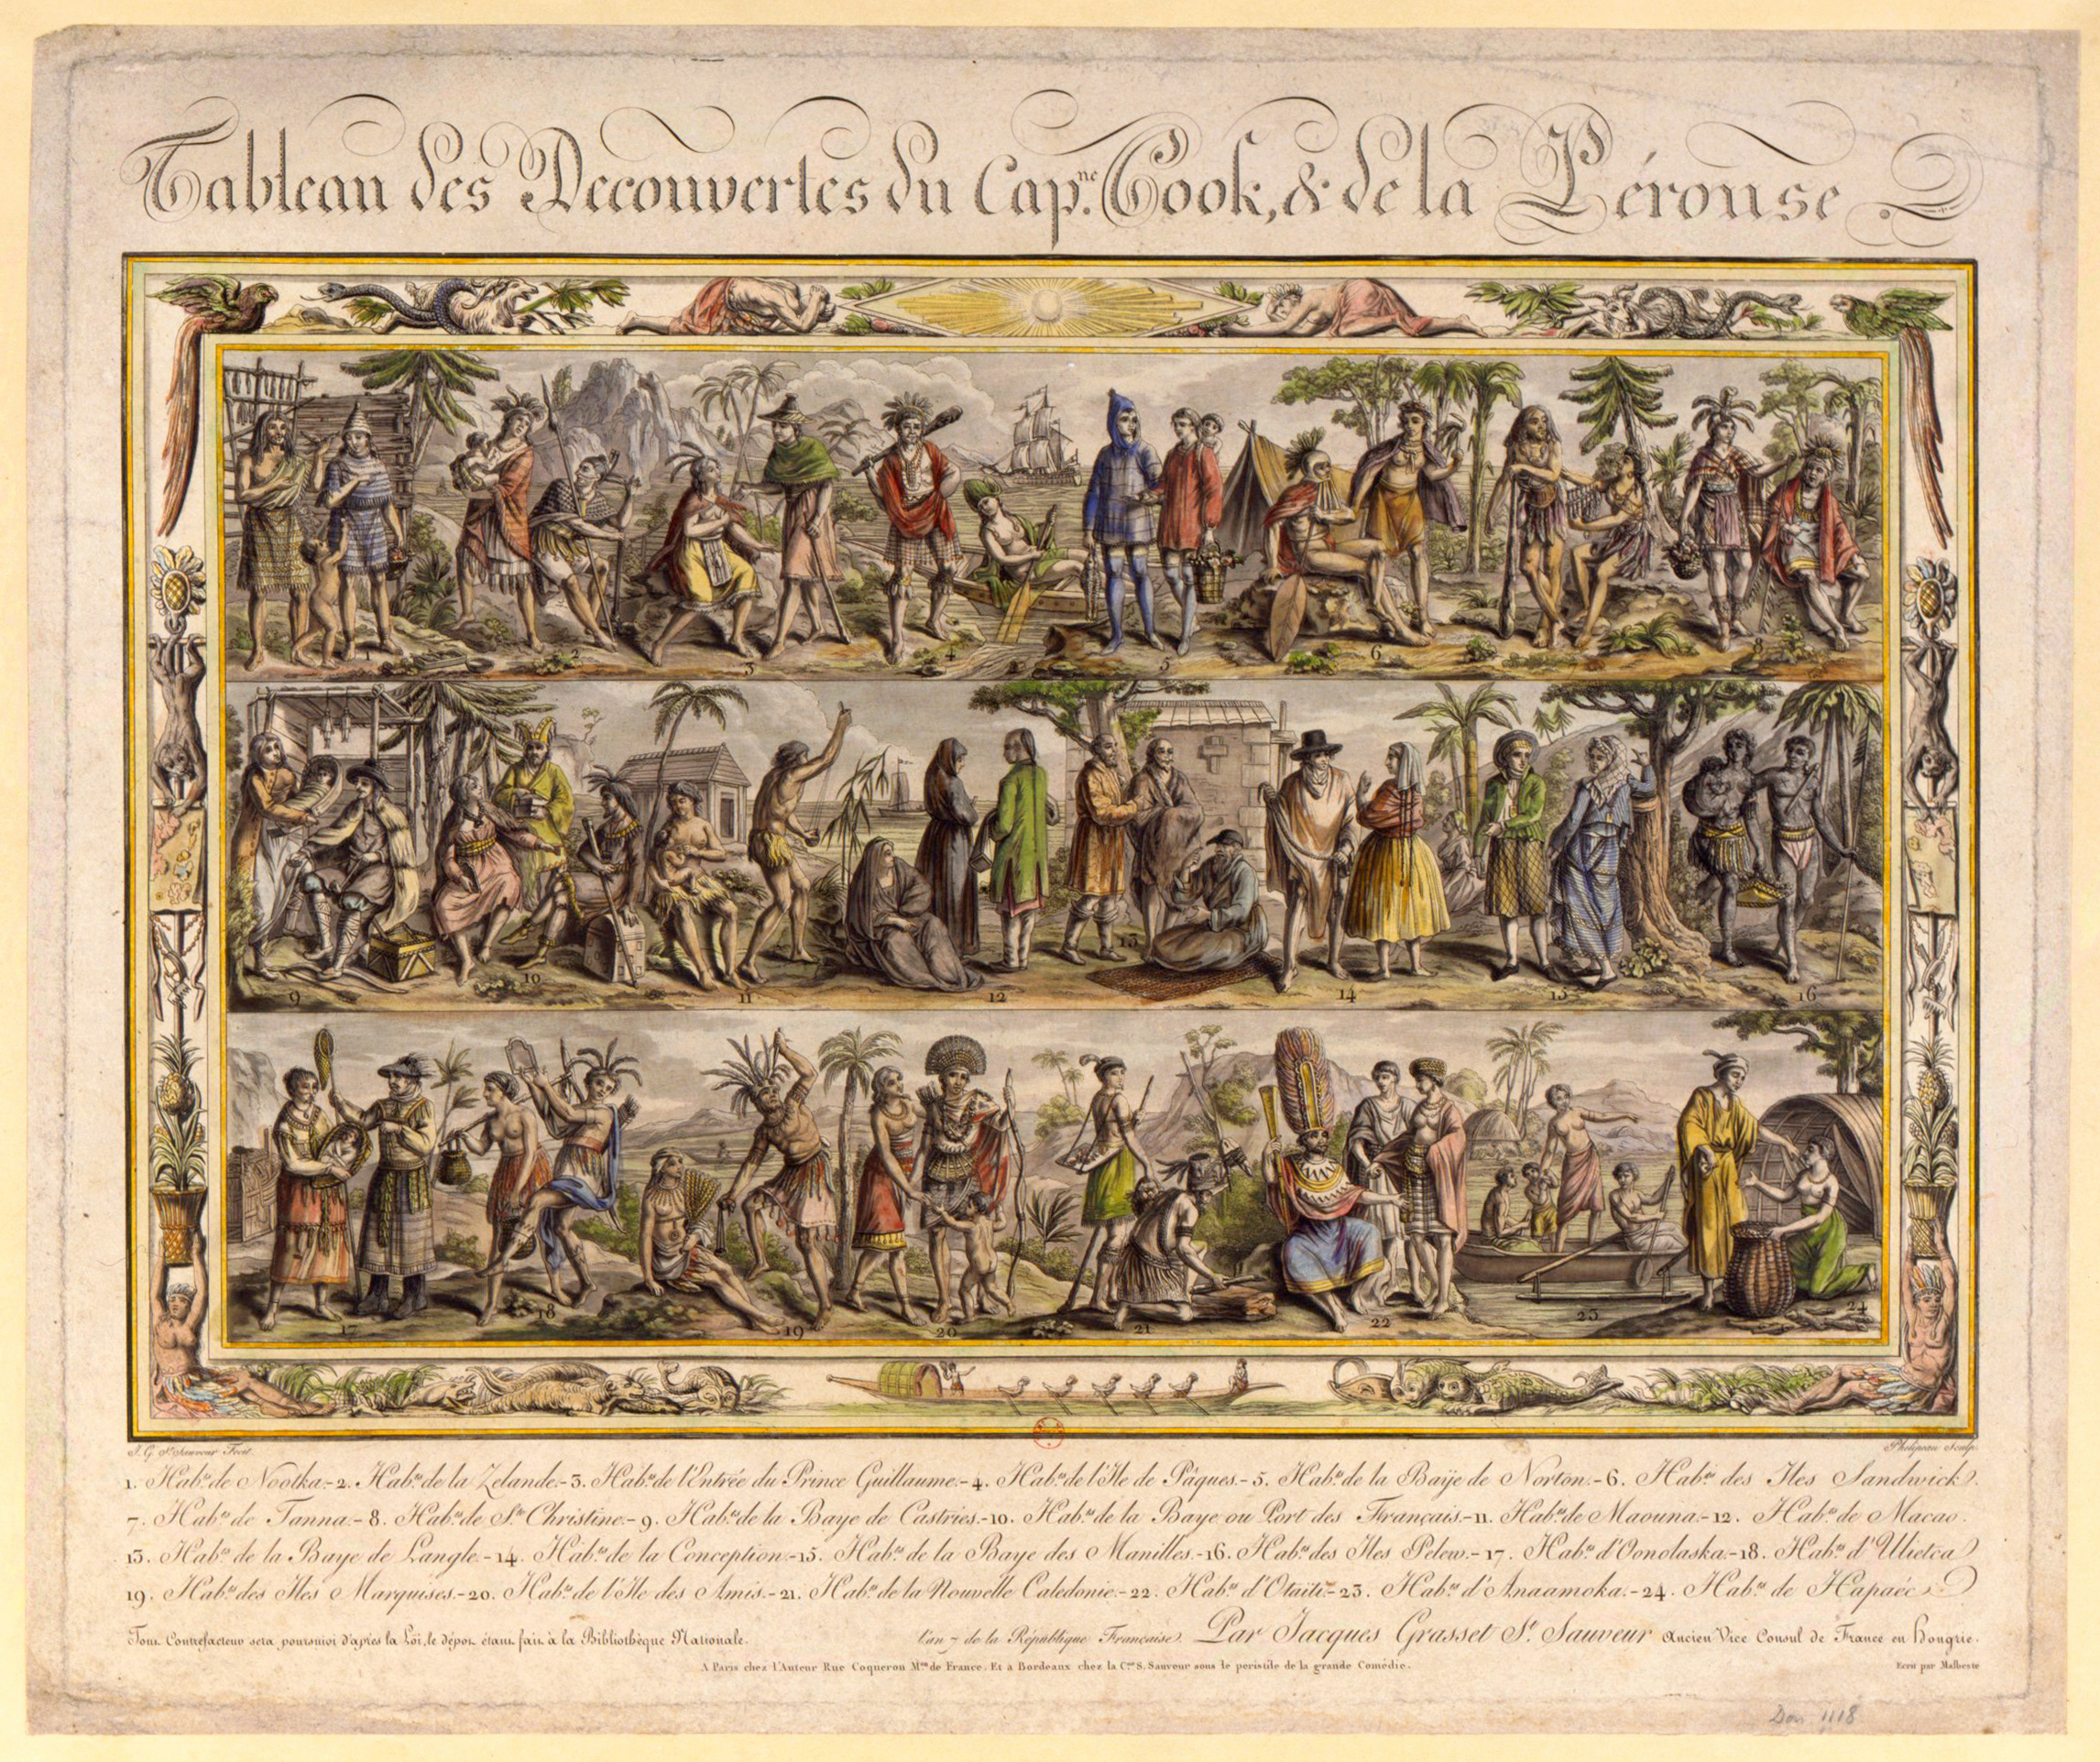 Tableau des Decouvertes du Cap.ne Cook, & de la Pérouse.
1 2 3 4 5 6 8
9 10 11 12 13 14 15 16
17 18 19 20 21 22 23 24
J. G. St. Sauveur Fecit.
Phelipeau Sculp.
1. Hab.ns de Nootka.-2. Hab.ns de la Zelande.-3. Hab.ns de l'Entrée du Prince Guillaume.-4. Hab.ns de l'Ile de Pâques.-5. Hab.ns de la Baÿe de Norton.-6. Hab.ns des Iles Sandwick.
7. Hab.ns de Tanna.-8. Hab.ns de S.te Christine.-9. Hab.ns de la Baye de Castries.-10. Hab.ns de la Baye ou Port des Français.-11. Hab.ns de Maouna.-12. Hab.ns de Macao.
13. Hab.ns de la Baye de Langle.-14. Hab.ns de la Conception.-15. Hab.ns de la Baye des Manilles.-16. Hab.ns des Iles Pelew.-17. Hab.ns d'Oonolaska.-18. Hab.ns d'Ulietea
19. Hab.ns des Iles Marquises.-20. Hab.ns de l'Ile des Amis.-21. Hab.ns de la Nouvelle Caledonie.-22. Hab.ns d'Otaïti.-23. Hab.ns d'Anaamoka.-24. Hab.ns de Hapaée
Tout Contrefacteur sera poursuivi d'après la Loi, le dépot étant fait à la Bibliothèque Nationale. l'an 7 de la République Française. Par Jacques Grasset S.t Sauveur Ancien Vice Consul de France en Hongrie.
A Paris chez l'Auteur Rue Coqueron M.on de France. Et à Bordeaux chez la C.ne S. Sauveur sous le peristile de la grande Comédie. Ecrit par Malbeste
Don 1118